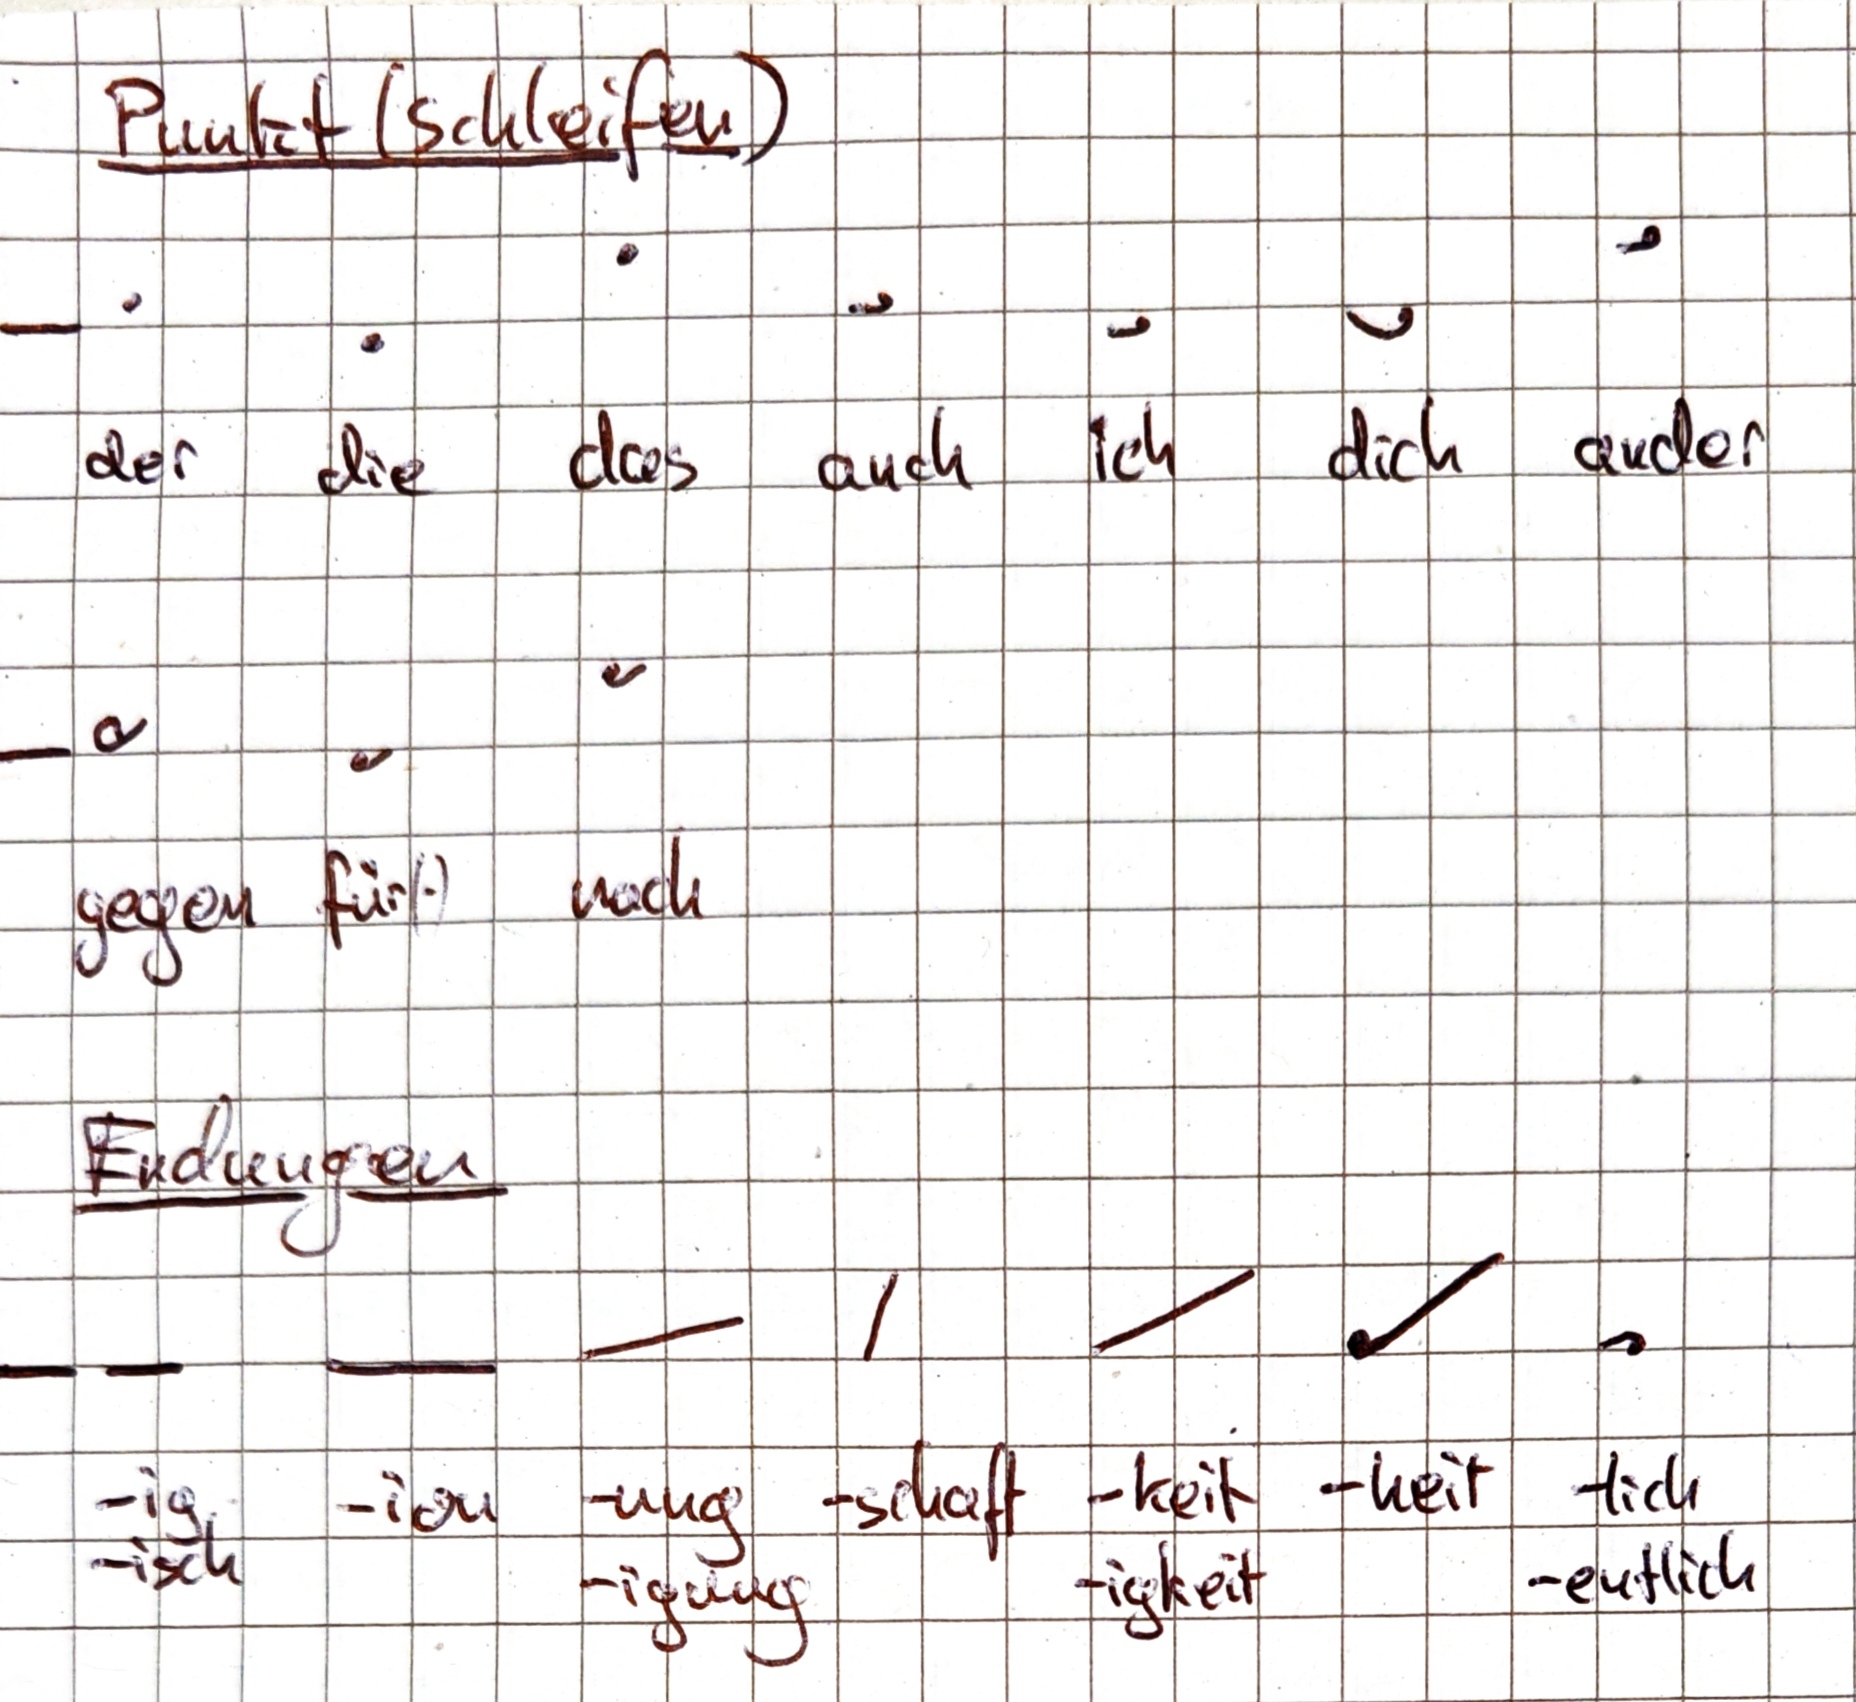 Punkt(schleifen)
der die das auch ich dich ander
gegen für(-) nach
Endungen
-ig -ion -ung -schaft -keit -heit -lich
-isch -igung -igkeit -entlich